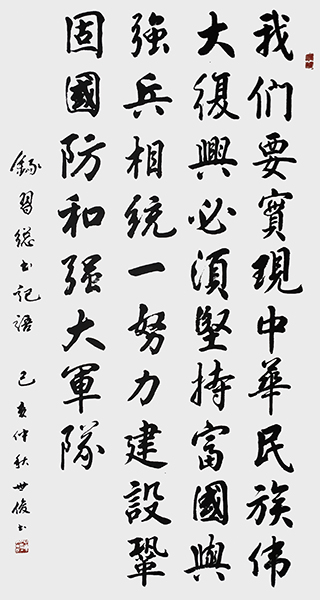 我们要實現中華民族伟
大復興必須堅持富國與
強兵相統一努力建設鞏
固國防和强大軍隊
錄習総书记語
己亥仲秋世俊书